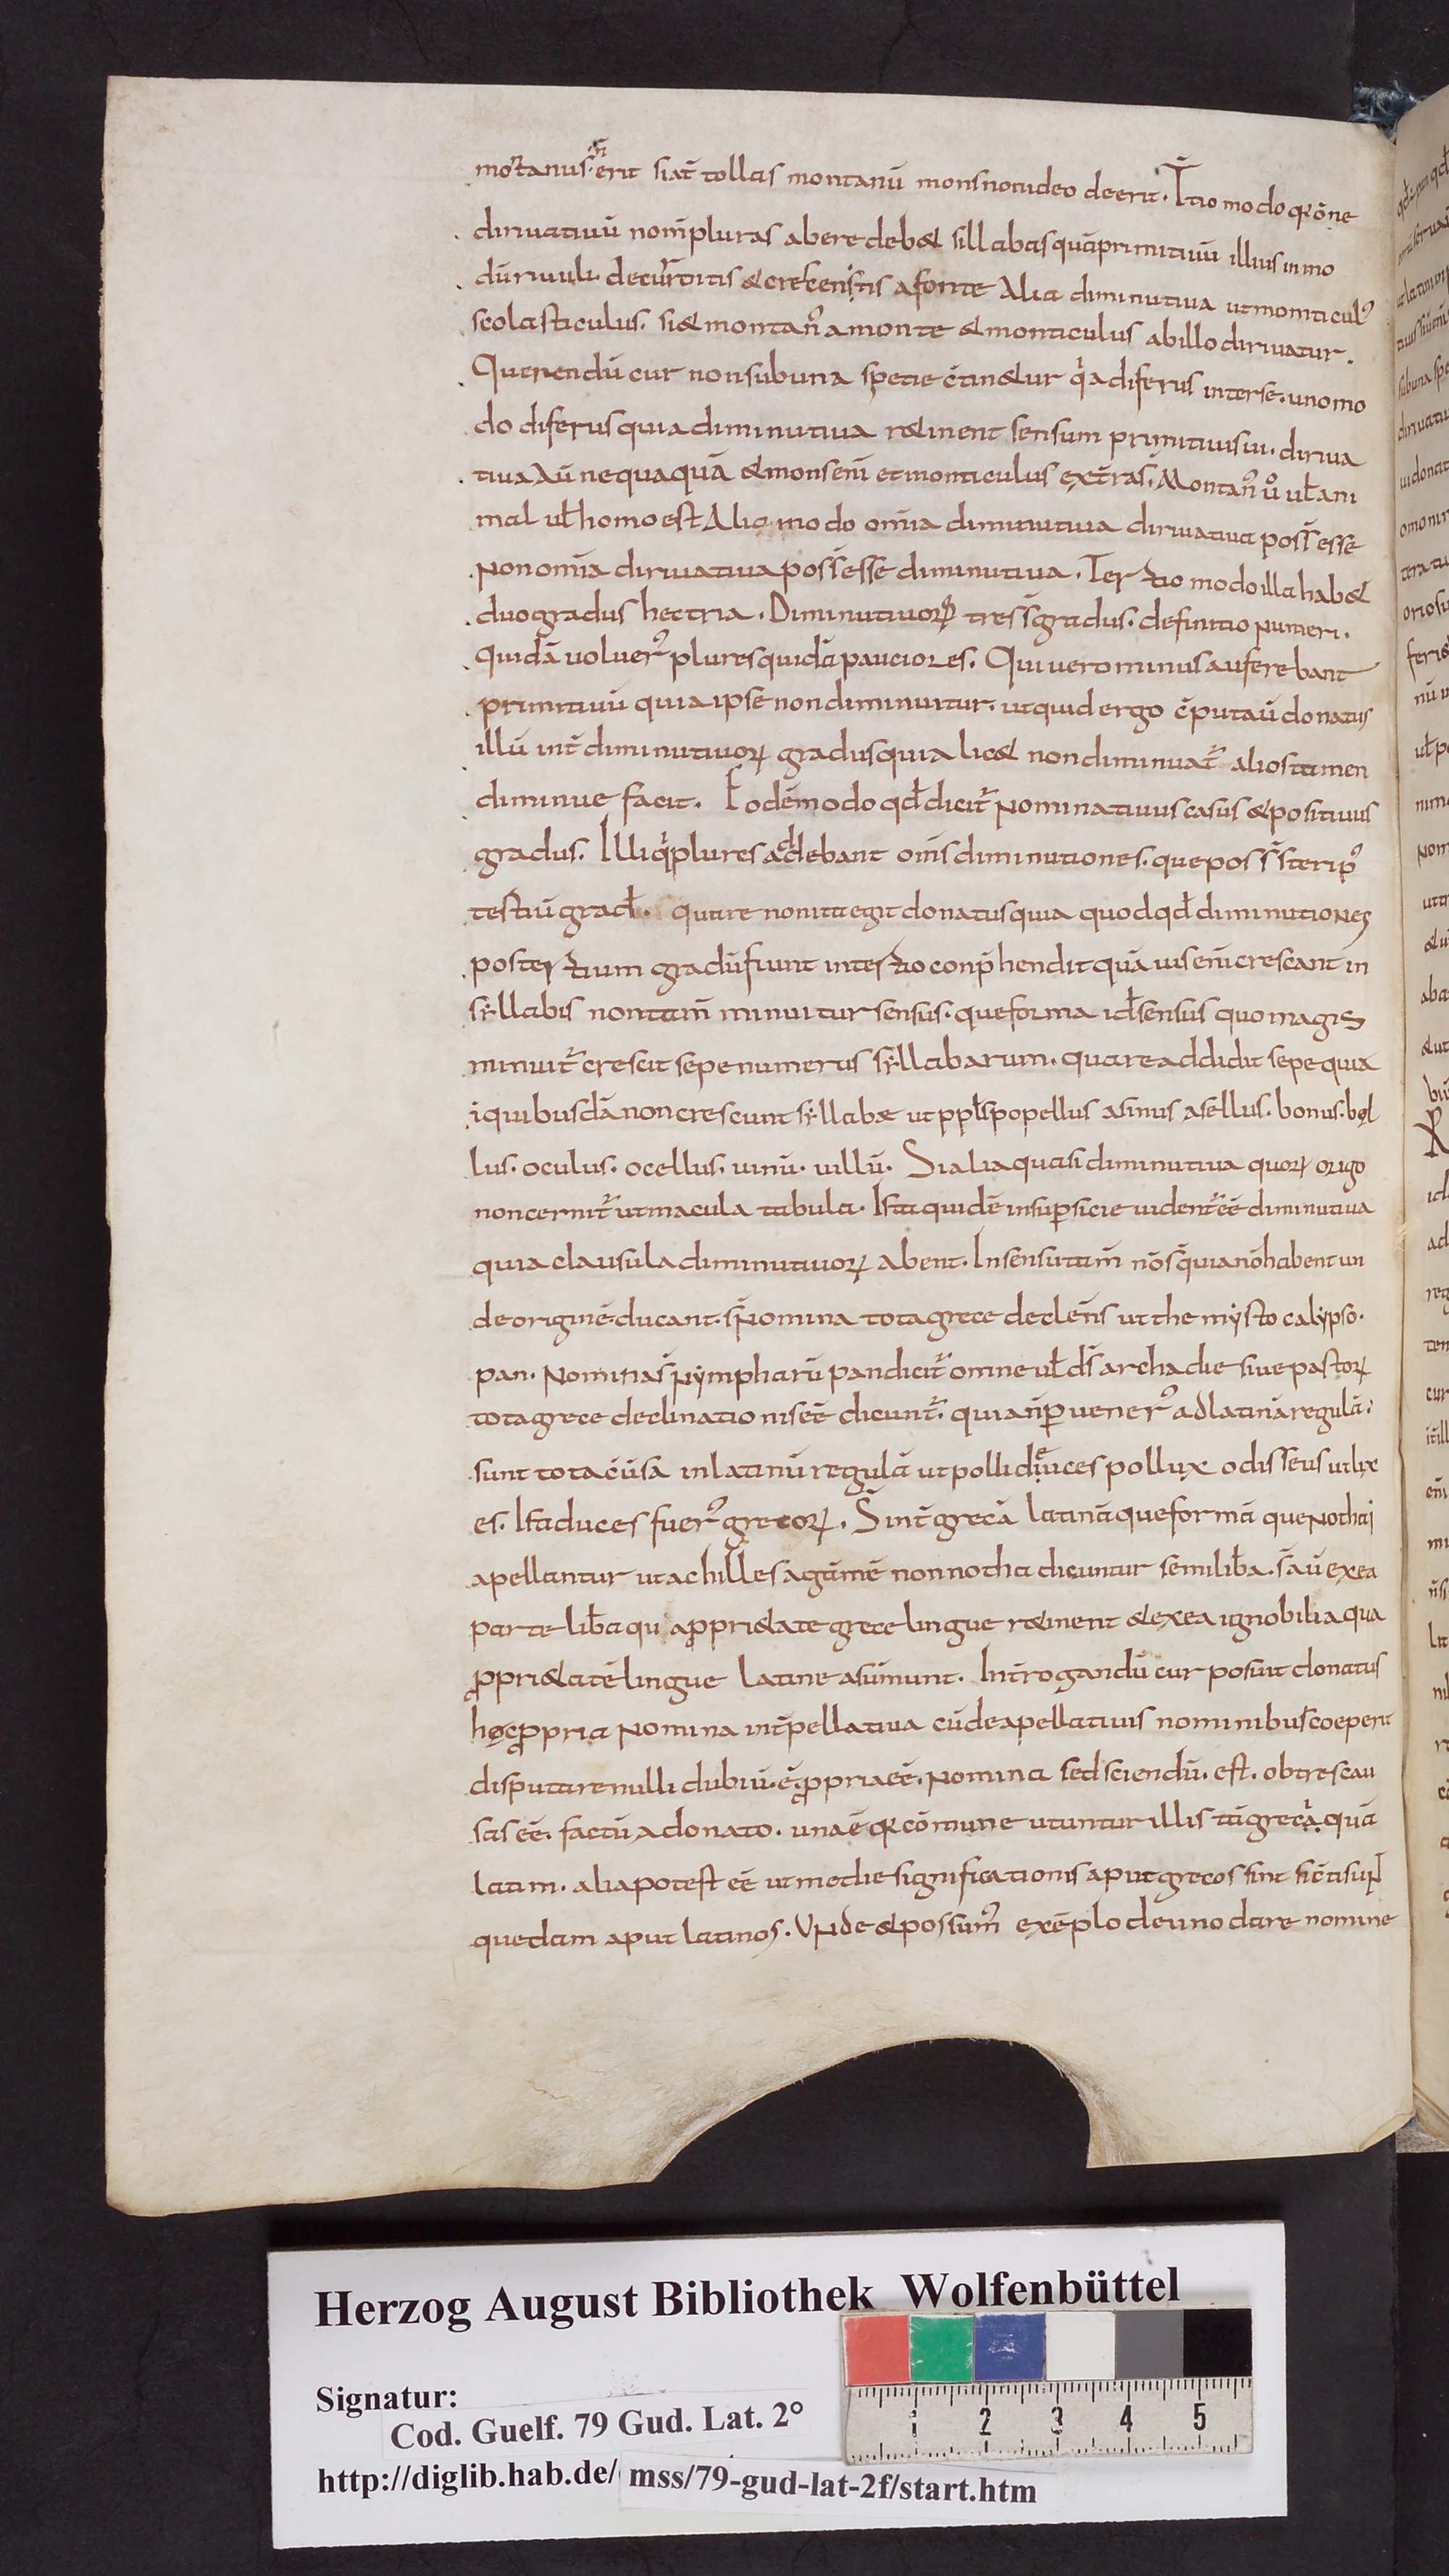 montanus n̄ erit siat̄ tollas montanū mons non ideo deerit. T̄tio modo q̨ ōne
diriuatiuū nom̄ pluras abere deb& sillabas quā primitiuū illius in mo
dū riuuli decurrentis & crescentis a fonte Alia diminutiua ut monticul᾽
scolasticulus. si & montan᾽ a monte & monticulus ab illo diriuatur.
Querendū cur non sub una spetie c̄tin&ur q̄a diferus inter se. uno mo
do diferus quia diminutiua r&inent sensum primitiui sui. diriua
tiua Aū nequaquā & mons eni et monticulus ext̄ras. Montan᾽ u᾽ ul̄ ani
mal ul̄ homo est Alio modo om̄ia diminutiua diriuatiua poss̄ esse
Non om̄ia diriuatiua poss̄ esse diminutiua. Tertio modo illa hab&
duo gradus hec tria. Diminutiuoꝝ tres s̄ gradus. definitio numeri.
quidā uoluer᾽ plures quidā pauciores. Qui uero minus auferebant
primitiuū quia ipse non diminuitur. ut quid ergo c̄putaū donatus
illū int̄ diminutiuoꝝ gradus quia lic& non diminuat᾽ alios tamen
diminue facit. Eodē modo qd̄ dicit᾽ Nominatiuus casus & positiuus
gradus. Illi q̄ plures addebant om̄s diminutiones. que poss̄ s̄t
testiū grad̄. quare non ita egit donatus quia quod qd̄ diminutiones
post tertium gradū fiunt in tertio conp̄hendit quā uis enī crescant in
sẏllabis non tam̄ minuitur sensus. que forma id̄ sensus quo magis
minuit᾽ crescit sepe numerus sẏllabarum. quare addidit sepe quia
i quibusdā non crescunt sẏllabæ ut ppl̄s popellus asinus asellus. bonus. bel
lus. oculus. ocellus. uinū. uillū. S̄ alia quasi diminutiua quoꝝ origo
non cernit᾽ ut macula tabula. Ista quidē in suꝑficie uident᾽ eē diminutiua
quia clausula diminutiuoꝝ abent. In sensu tam̄ nō s̄ quia nō habent un
de originē ducant. s̄ Nomina tota grece declen̄s ut themẏsto calẏpso.
pan. Nomina s̄ Nẏmpharū pan dicit᾽ omne ul̄ d̄s archadie siue pastoꝝ
tota grece declinationis eē dicunt᾽. quia n̄ ꝑuener᾽ ad latinā regulā.
sunt tota c̄uersa in latinū regulā ut pollideuces pollux odisseus ulix
es. Ista duces fuer᾽ grecoꝝ. S̄ int̄ grecā latinā que formā que Notha
apellantur ut achilles agamē non notha dicuntur semilib̄a. s̄ aū ex ea
parte lib̄a qui a ꝓpri&ate grece lingue r&inent & ex ea ignobilia qua
ꝓpri&atē lingue latine asūmunt. Int̄rogandū cur posuit donatus
hoc ꝓpria Nomina int̄ pellatiua cū de apellatiuis nominibus coeperit
disputare nulli dubiū ē ꝓpria eē. Nomina sed sciendū. est. ob tres cau
sas eē. factū a donato. una ē q̨ cōmune utuntur illis tā grecā quā
latim. alia potest eē ut medie significationis aput grecos sint
quedam aput latinos. Unde & possum᾽ exēplo de uno dare nomine
Herzog August Bibliothek Wolfenbüttel
Signatur:
Cod. Guelf. 79 Gud. Lat. 2°
http://diglib.hab.de/ mss/79-gud-lat-2f/start.htm
1 2 3 4 5